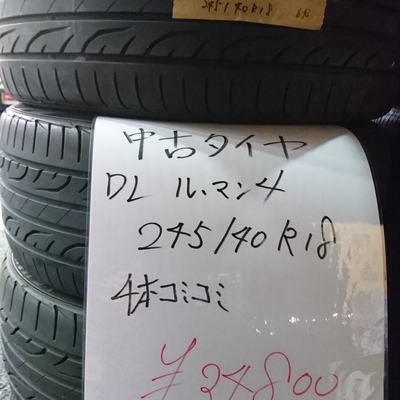 245/40R18
中古タイヤ
DL ル・マン4
245/40R18
4本コミコミ
¥24800